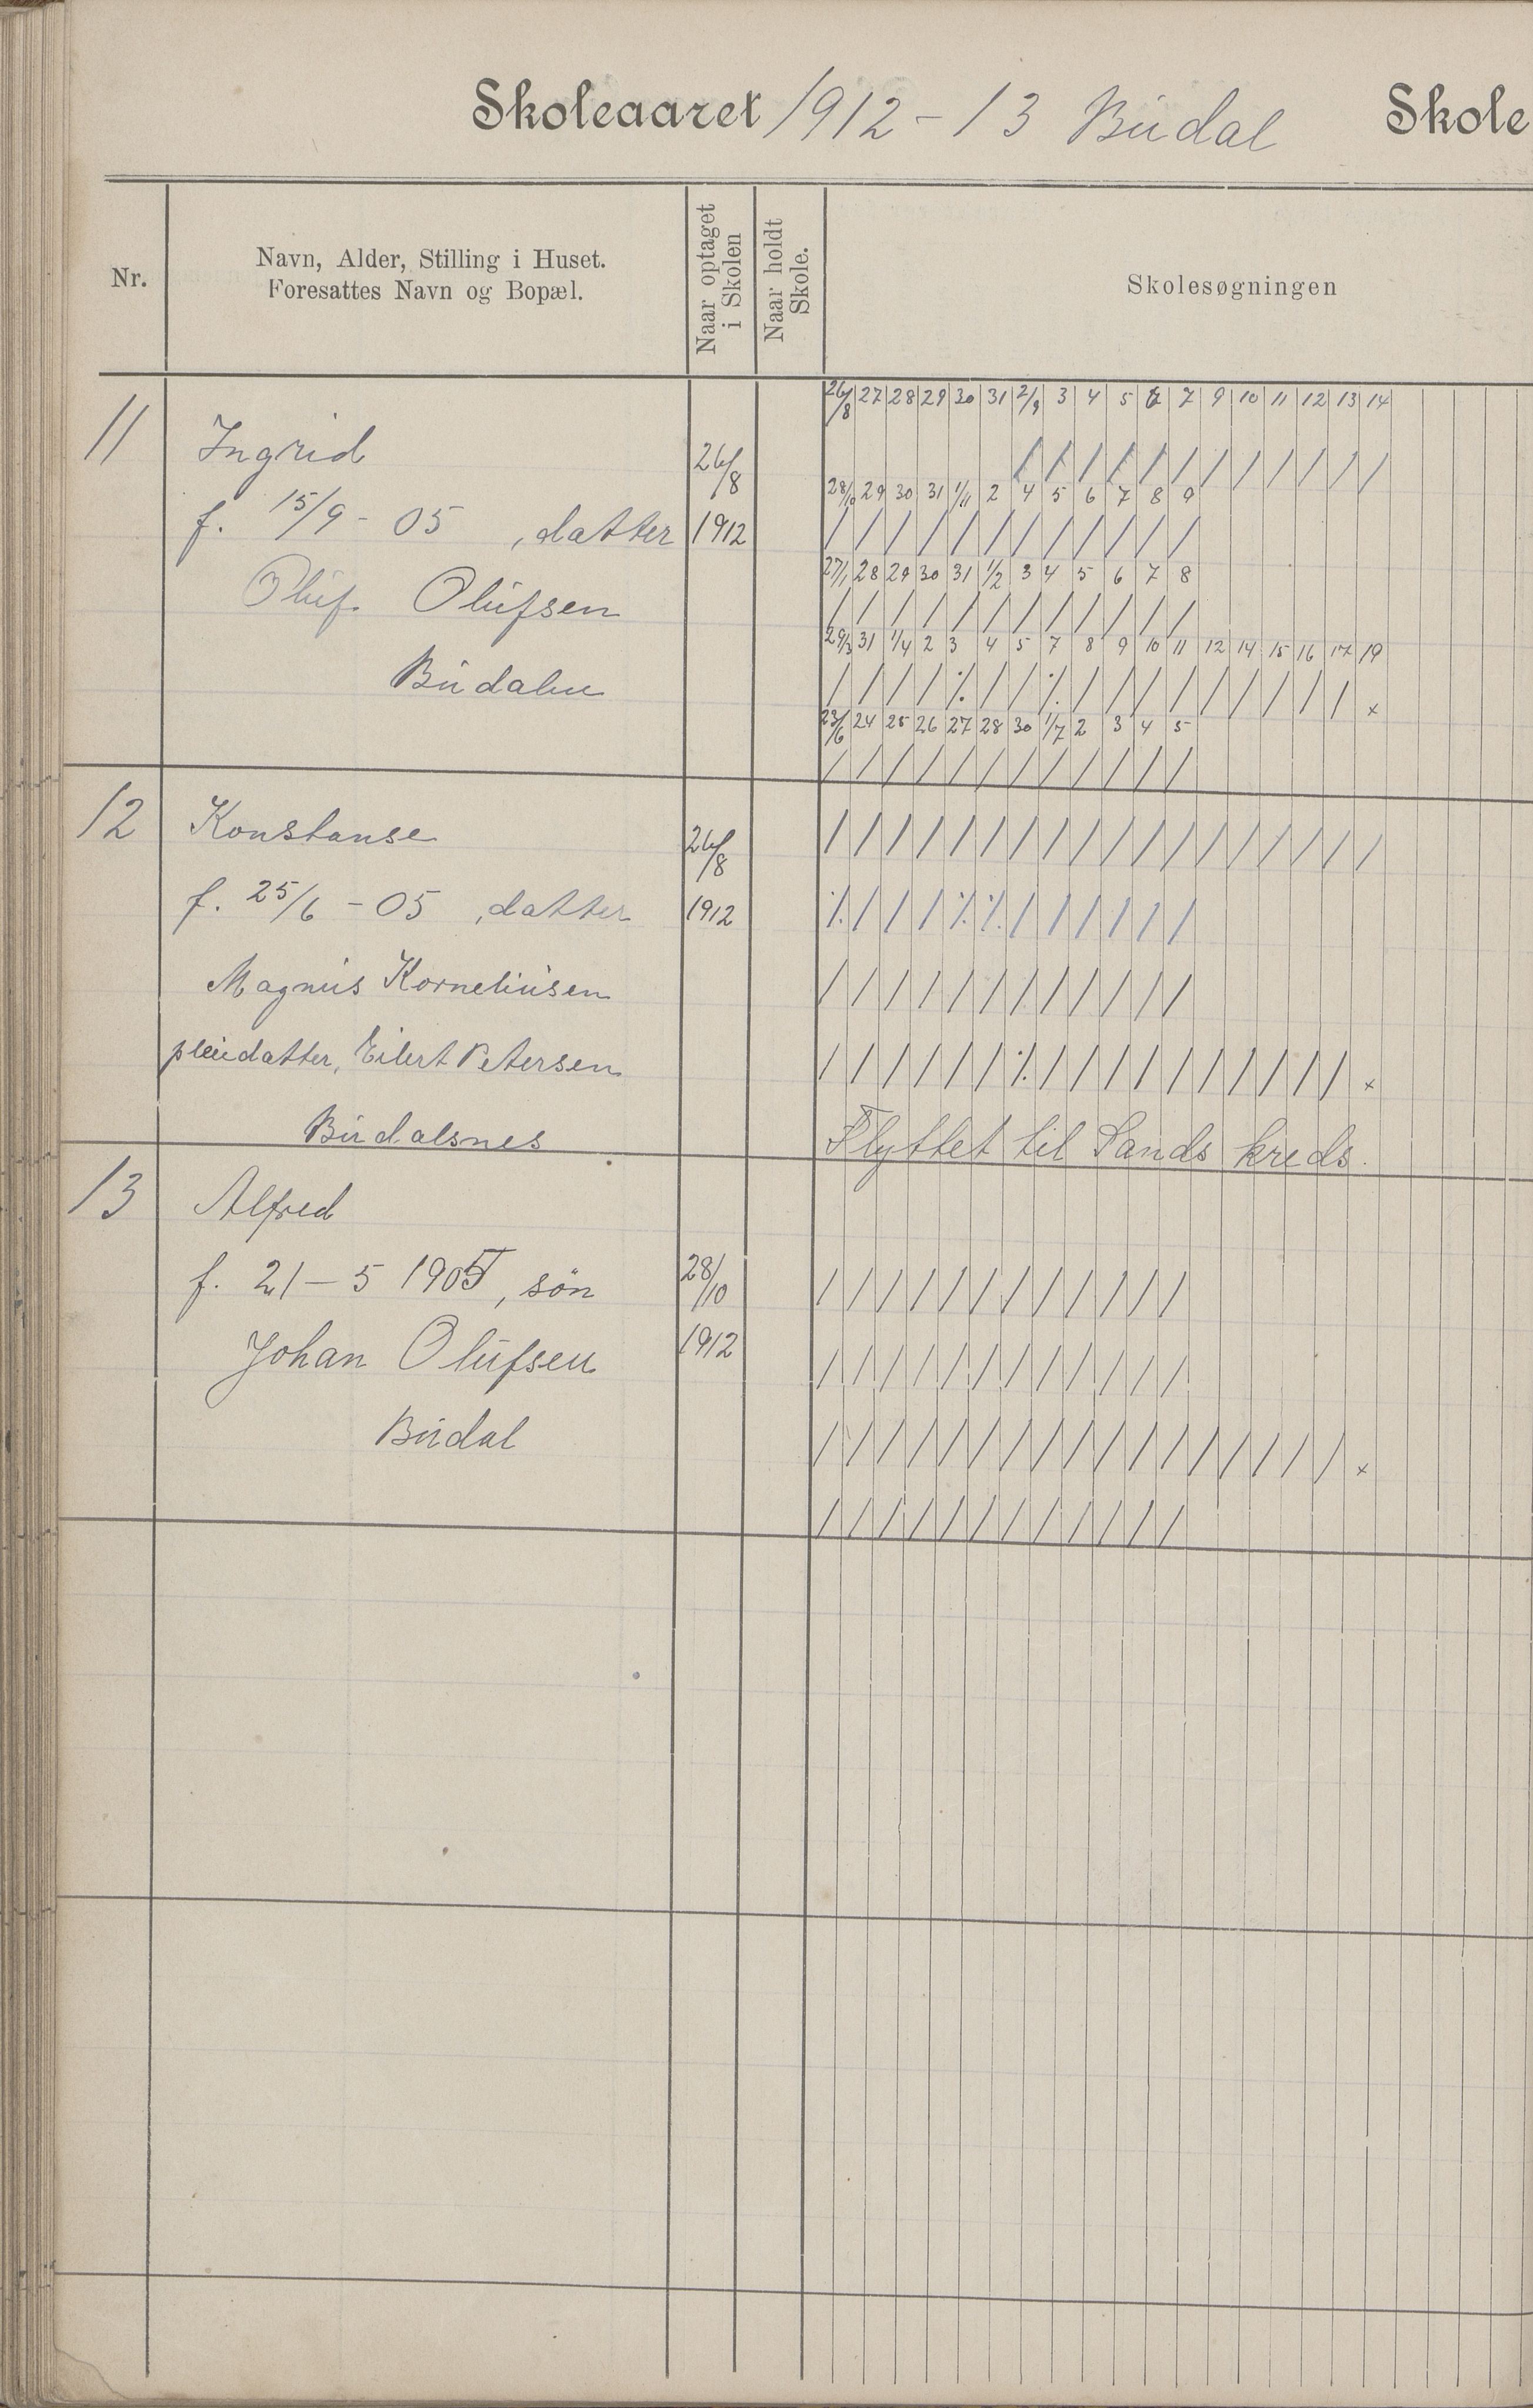 Skoleaaret 1912-13 Budal Skole
Nr.
Navn, Alder, Stilling i Huset.
Foresattes Navn og Bopæl.
Naar optaget
i Skolen
Naar holdt
Skole.
Skolesøgningen
26/8 27 28 29 30 31 2/9 3 4 5 6 7 9 10 11 12 13 14
11 Ingrid 26/8
/ / / / / / / / / / / /
28/10 29 30 31 1/11 2 4 5 6 7 8 9
f. 15/9 - 05 , datter 1912 / / / / / / / / / / / /
27/1 28 29 30 31 1/2 3 4 5 6 7 8
Oluf Olufsen / / / / / / / / / / / /
29/3 31 1/4 2 3 4 5 7 8 9 10 11 12 14 15 16 17 19
Budalen / / / / ٪ / / ٪ / / / / / / / / / x
23/6 24 25 26 27 28 30 1/7 2 3 4 5
/ / / / / / / / / / / /
12 Konstanse 26/8 / / / / / / / / / / / / / / / / / /
f. 25/6 - 05 , datter 1912 ٪ / / / ٪ ٪ / / / / / /
Magnus Korneliusen / / / / / / / / / / / /
pleiedatter, Eilert Petersen / / / / / / ٪ / / / / / / / / / / x
Budalsnes Flyttet til Sands kreds.
13 Alfred
f. 21-5 1905, søn 28/10 / / / / / / / / / / / /
Johan Olufsen 1912 / / / / / / / / / / / /
Budal / / / / / / / / / / / / / / / / / x
/ / / / / / / / / / / /